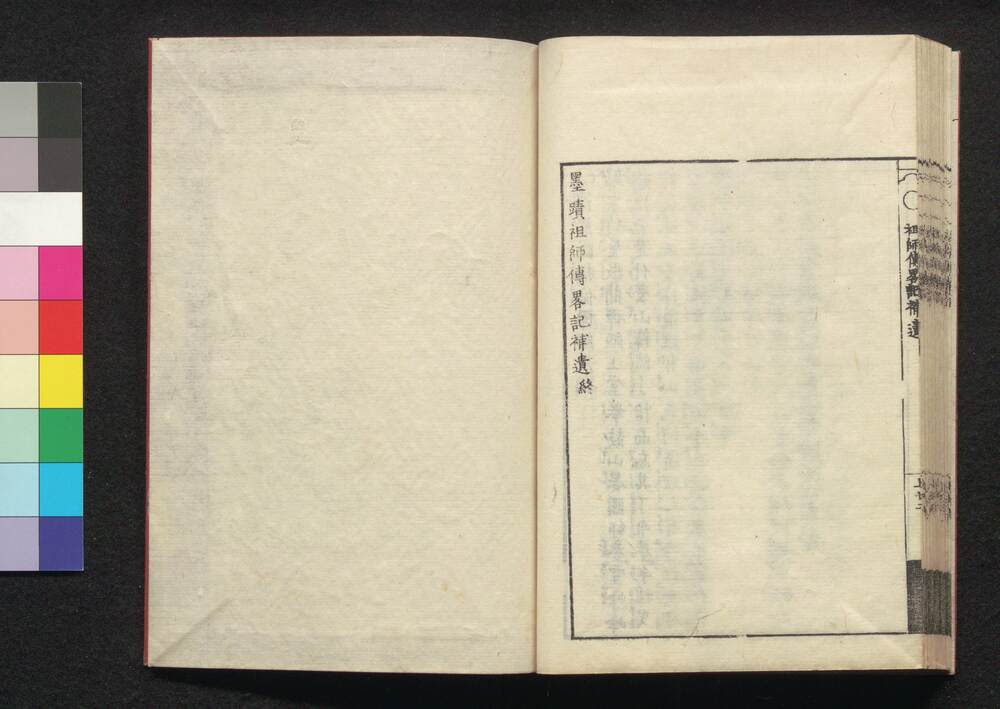 祖師傳畧記補遺
墨蹟祖師傳畧記補遺終